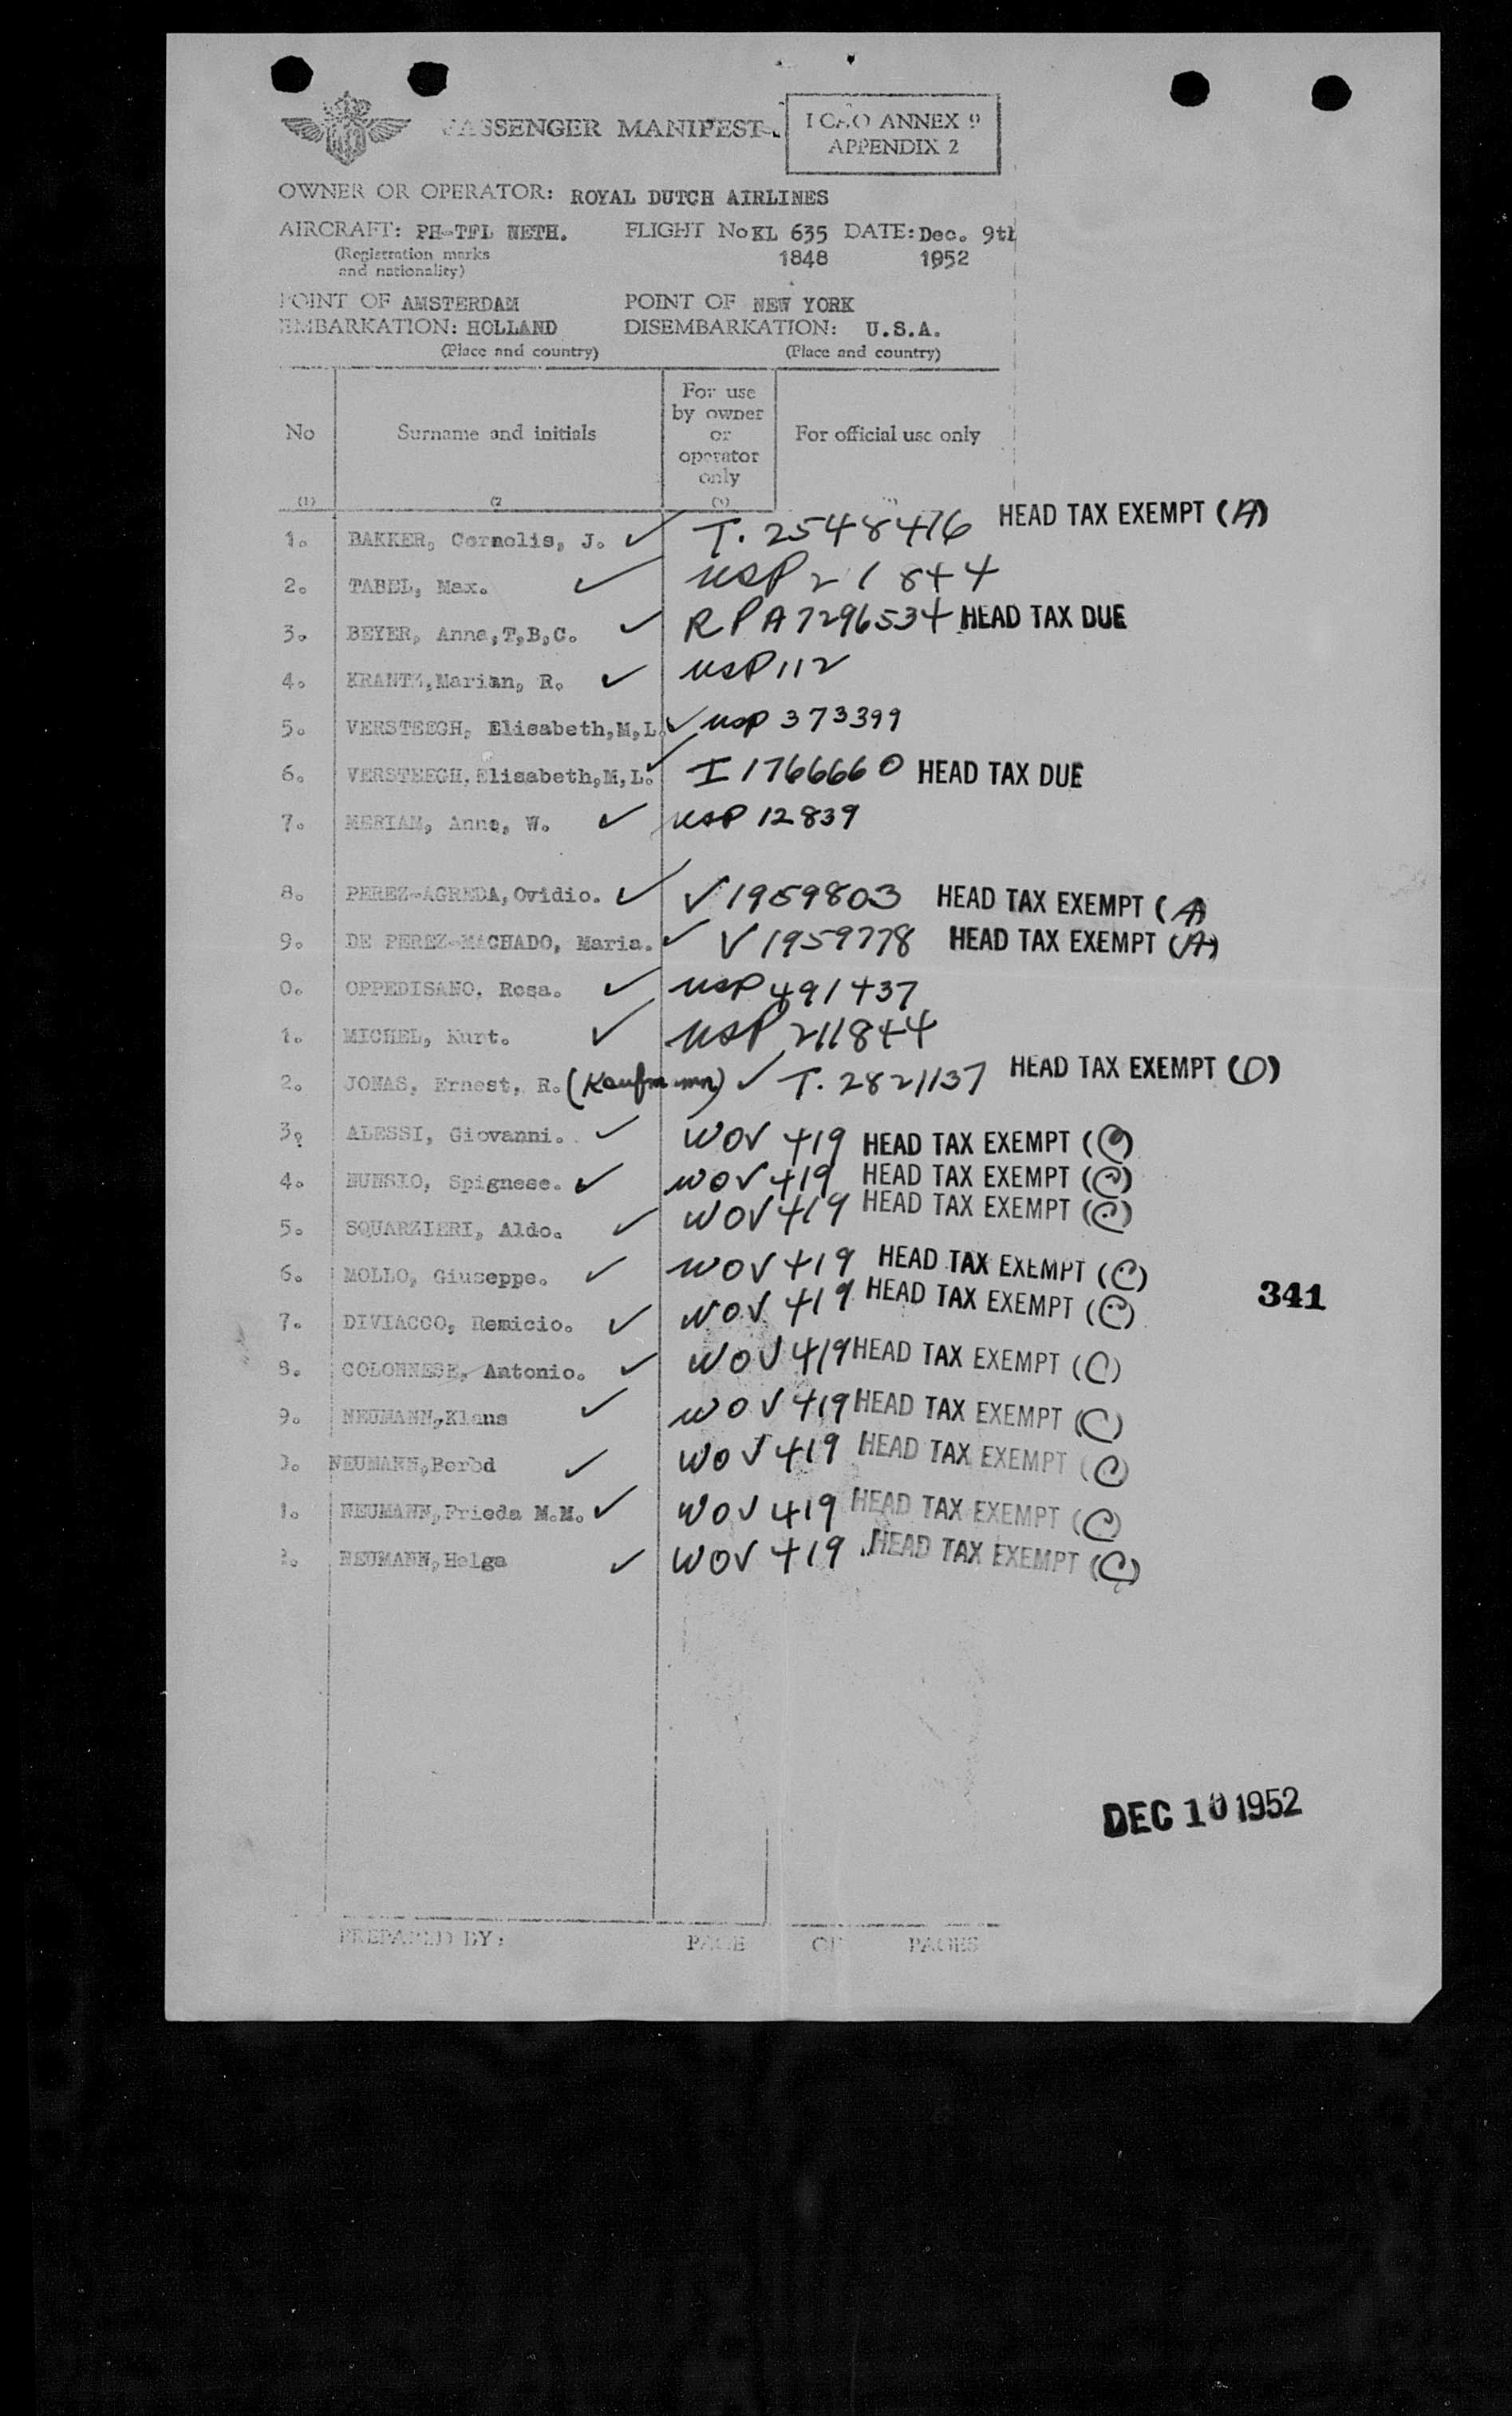 PASSENGER MANIFEST
ICAO ANNEX 9
APPENDIX 2
OWNER OR OPERATOR: ROYAL DUTCH AIRLINES
AIRCRAFT: PH-TFL NETH. FLIGHT No KL 635 DATE: Dec. 9th
(Registration marks and nationality) 1848 1952
POINT OF EMBARKATION: AMSTERDAM HOLLAND POINT OF DISEMBARKATION: NEW YORK U.S.A.
(Place and country) (Place and country)
No Surname and initials For use by owner or operator only For official use only
(1) (2 (3)
1. BAKKER, Cornelis, J. ✓ T. 2548416 HEAD TAX EXEMPT (A)
2. TABEL, Max. ✓ USP 21844
3. BEYER, Anna,T,B,C. ✓ RPA7296534 HEAD TAX DUE
4. KRANTZ,Marian, R. ✓ USP112
5. VERSTEEGH, Elisabeth,M,L. ✓ USP 373399
6. VERSTEEGH, Elisabeth,M,L. ✓ I 1766660 HEAD TAX DUE
7. MERIAM, Anne, W. ✓ USP 12839
8. PEREZ-AGREDA, Ovidio. ✓ V1959803 HEAD TAX EXEMPT (A)
9. DE PEREZ-MACHADO, Maria. ✓ V 1959778 HEAD TAX EXEMPT (A)
0. OPPEDISANO, Rosa. ✓ USP 491437
1. MICHEL, Kurt. ✓ USP 211844
2. JONAS, Ernest, R. (Kaufmann) ✓ T. 2821137 HEAD TAX EXEMPT (O)
3. ALESSI, Giovanni. ✓ WOV 419 HEAD TAX EXEMPT (C)
4. NUNSIO, Spignese. ✓ WOV 419 HEAD TAX EXEMPT (C)
5. SQUARZIERI, Aldo. ✓ WOV 419 HEAD TAX EXEMPT (C)
6. MOLLO, Giuseppe. ✓ WOV 419 HEAD TAX EXEMPT (C)
7. DIVIACCO, Remicio. ✓ WOV 419 HEAD TAX EXEMPT (C)
341
8. COLONNESE, Antonio. ✓ WOV 419 HEAD TAX EXEMPT (C)
9. NEUMANN,Klaus ✓ WOV 419 HEAD TAX EXEMPT (C)
0. NEUMANN,Berbd ✓ WOV 419 HEAD TAX EXEMPT (C)
1. NEUMANN,Frieda M.M. ✓ WOV 419 HEAD TAX EXEMPT (C)
2. NEUMANN,Helga ✓ WOV 419 HEAD TAX EXEMPT (C)
DEC 10 1952
PREPARED BY: PAGE OF PAGES